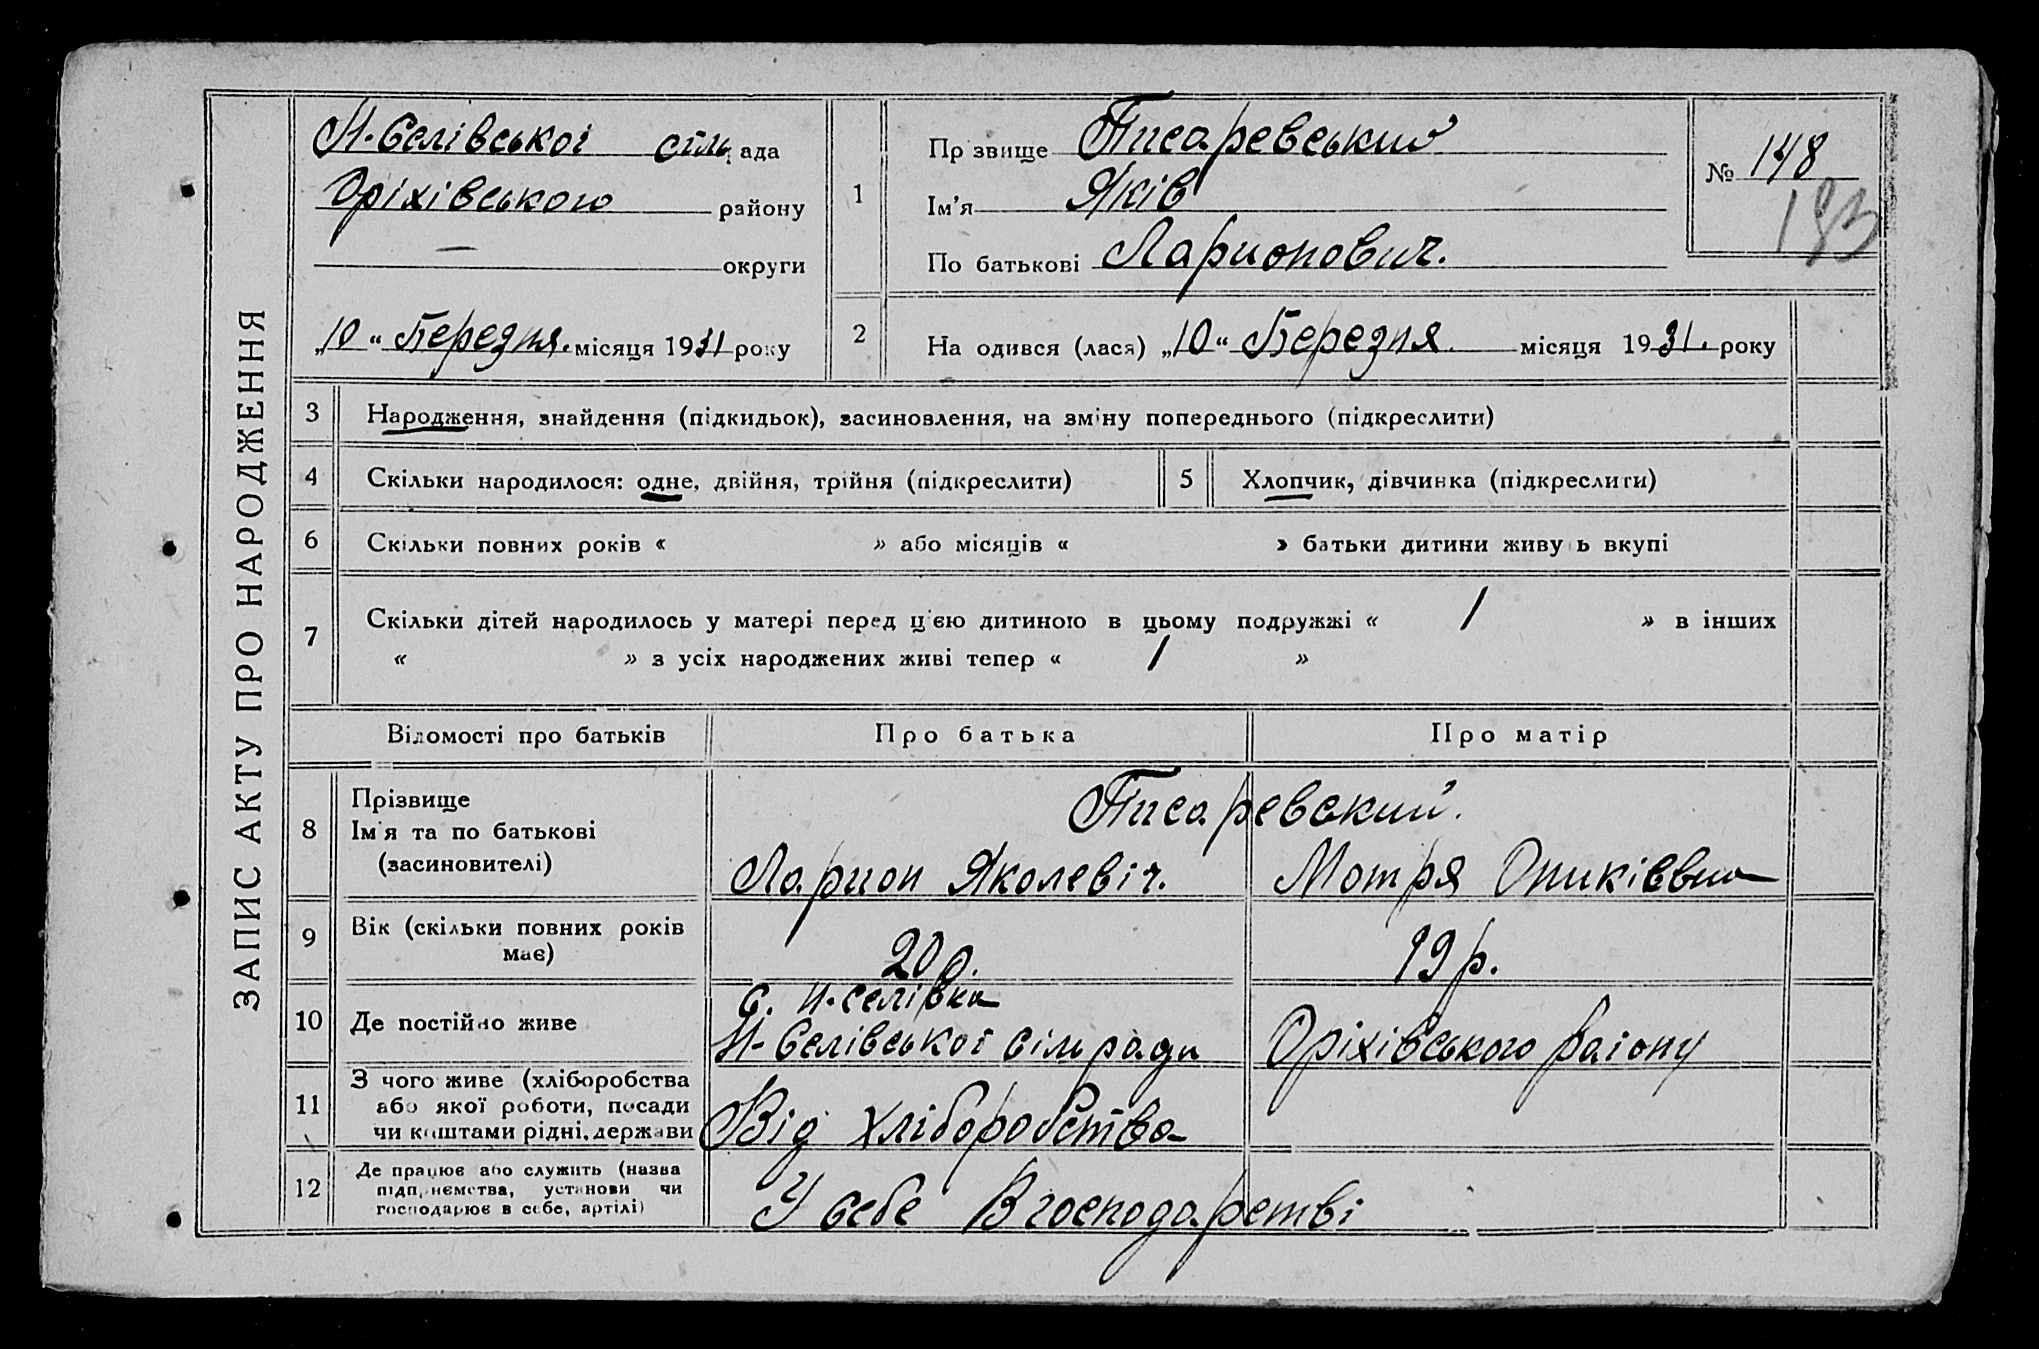 ЗАПИС АКТУ ПРО НАРОДЖЕННЯ
М-Єелівської сільрада
Оріхівського району
— округи
„10“ Березня. місяця 1931 року
1
Прізвище Писаревський
Ім'я Яків
По батькові Ларионович.
№ 148
183
2
Народився (лася) „10“ Березня місяця 1931. року
3 Народження, знайдення (підкидьок), засиновлення, на зміну попереднього (підкреслити)
4 Скільки народилося: одне, двійня, трійня (підкреслити)
5 Хлопчик, дівчинка (підкреслити)
6 Скільки повних років « » або місяців « » батьки дитини живуть вкупі
7 Скільки дітей народилось у матері перед цією дитиною в цьому подружжі « 1 » в інших
« » з усіх народжених живі тепер « 1 »
Відомості про батьків Про батька Про матір
8 Прізвище
Ім'я та по батькові
(засиновителі)
Писаревский.
Ларион Яколевіч. Мотря
9 Вік (скільки повних років
має)
20 р. 19 р.
10 Де постійно живе
с. Н-селівка
Н-Селівської сільради Оріхівського раіону
11 З чого живе (хліборобства
або якої роботи, посади
чи коштами рідні, держави
Від хліборобства
12 Де працює або служить (назва
підприємства, установи чи
господарює в себе, артілі)
У себе В господарстві